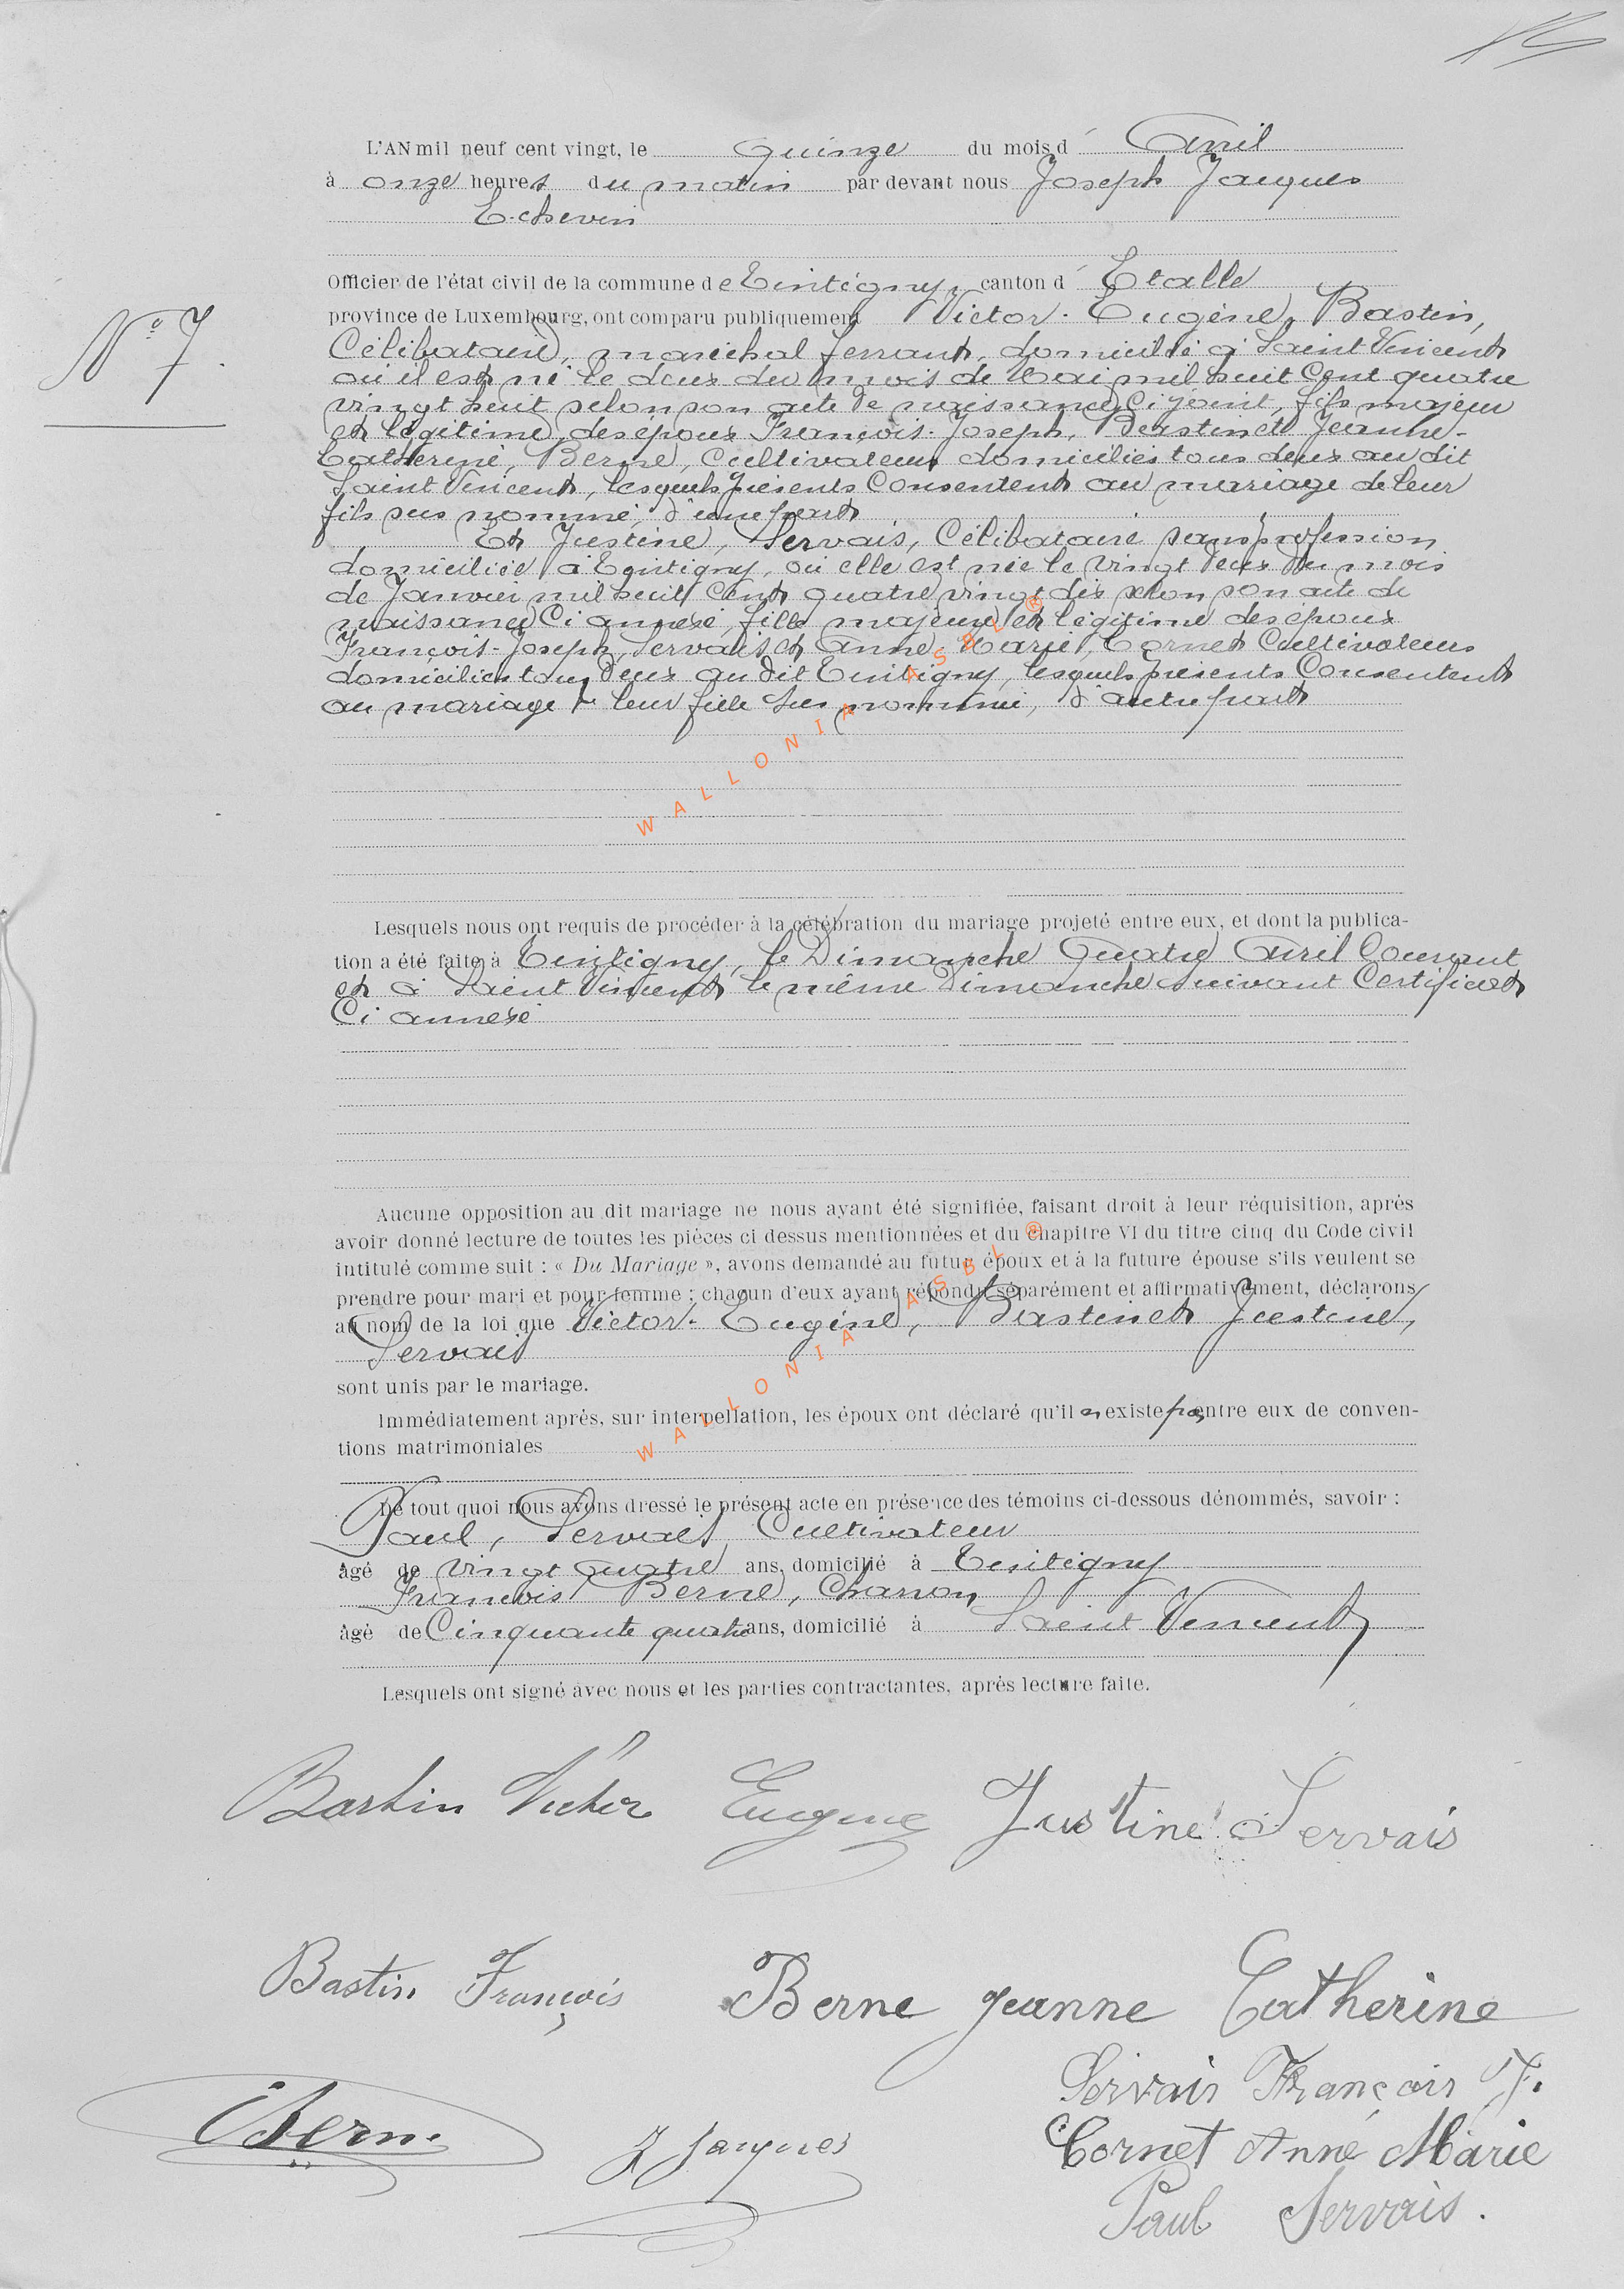 L'AN mil neuf cent vingt, le quinze du mois d' Avril
à onze heures du matin par devant nous Joseph Jacques
Echevin
Officier de l'état civil de la commune de Tintigny, canton d' Etalle
N° 7.
province de Luxembourg, ont comparu publiquement Victor-Eugène, Bastin,
Célibataire, maréchal ferrant, domicilié à Saint Vincent
où il est né le deux du mois de Mai mil huit Cent quatre
vingt huit selon son acte de naissance Ci joint, fils majeur
et légitime, des époux François-Joseph, Bastin et Jeanne-
Catherine, Berne, Cultivateurs domiciliés tous deux au dit
Saint Vincent, lesquels présents Consentent au mariage de leur
fils sus nommé, d'une part
Et Justine, Servais, Célibataire sans profession
domiciliée à Tintigny, où elle est née le vingt deux du mois
de Janvier mil huit Cent quatre vingt dix selon son acte de
naissance Ci annexé, fille majeure et légitime des époux
François-Joseph, Servais et Anne-Marie, Cornet Cultivateurs
domiciliés tous deux au dit Tintigny, lesquels présents Consentent
au mariage de leur fille sus nommée, d'autre part
WALLONIA ASBL ®
Lesquels nous ont requis de procéder à la célébration du mariage projeté entre eux, et dont la publica-
tion a été faite à Tintigny, le Dimanche Quatre Avril Courant
et à Saint Vincent le même Dimanche suivant Certificat
Ci annexé
Aucune opposition au dit mariage ne nous ayant été signifiée, faisant droit à leur réquisition, après
avoir donné lecture de toutes les pièces ci dessus mentionnées et du chapitre VI du titre cinq du Code civil
intitulé comme suit : « Du Mariage », avons demandé au futur époux et à la future épouse s'ils veulent se
prendre pour mari et pour femme ; chacun d'eux ayant répondu séparément et affirmativement, déclarons
au nom de la loi que Victor-Eugène, Bastin et Justine,
Servais
sont unis par le mariage.
WALLONIA ASBL ®
Immédiatement après, sur interpellation, les époux ont déclaré qu'il n existe pas entre eux de conven-
tions matrimoniales
De tout quoi nous avons dressé le présent acte en présence des témoins ci-dessous dénommés, savoir :
Paul, Servais, Cultivateur
âgé de vingt quatre ans, domicilié à Tintigny
François Berne, Charron
âgé de Cinquante quatre ans, domicilié à Saint Vincent
Lesquels ont signé avec nous et les parties contractantes, après lecture faite.
Bastin Victor Eugène Justine Servais
Bastin François Berne Jeanne Catherine
Servais François J.
Berne J Jacques Cornet Anne Marie
Paul Servais.